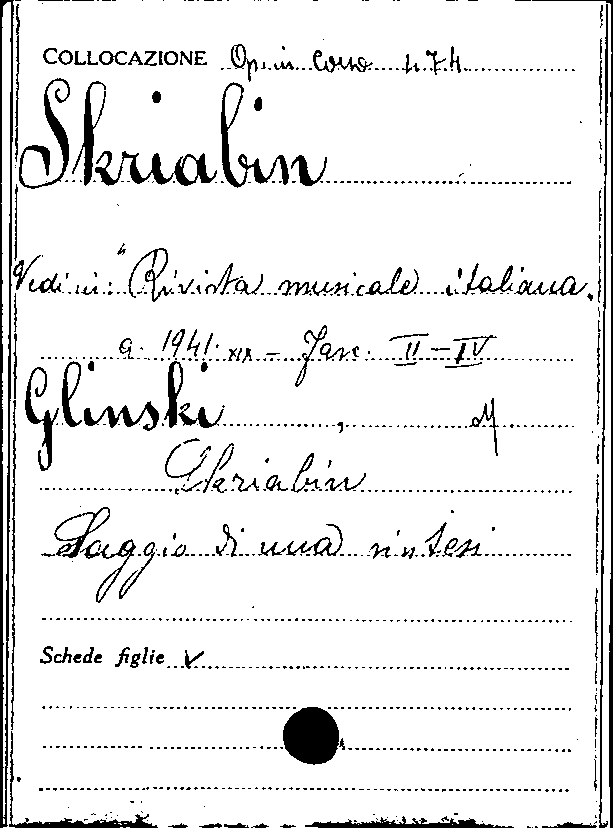 COLLOCAZIONE Op. in corso 474
Skriabin
Vedi in: "Rivista musicale italiana.
a. 1941. XIX – Fasc. II – IV
Glinski, M
Skriabin
Saggio di una sintesi
Schede figlie V